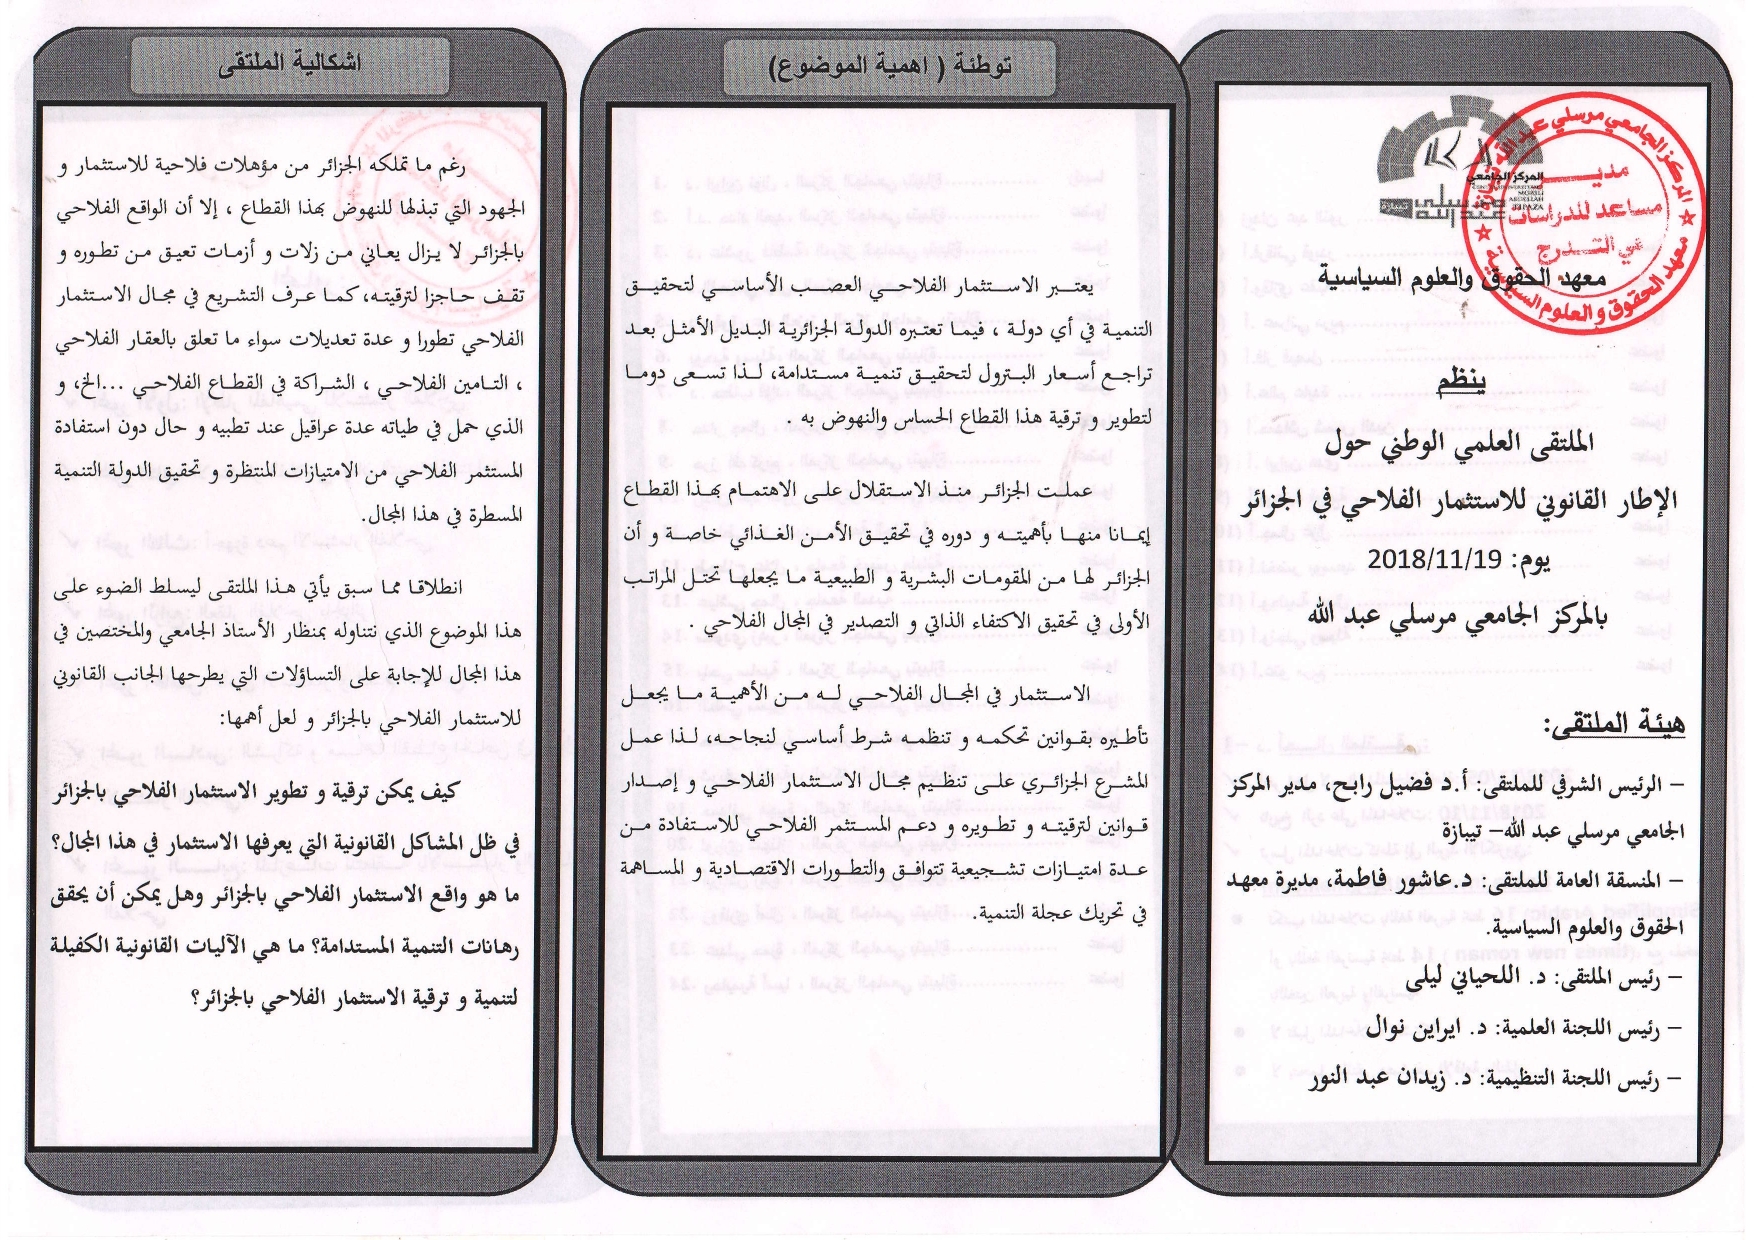 المركز الجامعي
مرسلي
عبد الله
تيبازة
CENTRE UNIVERSITAIRE
MORSLI
ABDELLAH
TIPAZA
المركز الجامعي مرسلي عبد الله تيبازة
مديـــر
مساعد للدراسات
في التـدرج
معهد الحقوق والعلوم السياسية
معهد الحقوق والعلوم السياسية
ينظم
الملتقى العلمي الوطني حول
الإطار القانوني للاستثمار الفلاحي في الجزائر
يوم: 2018/11/19
بالمركز الجامعي مرسلي عبد الله
هيئة الملتقى:
– الرئيس الشرفي للملتقى: أ.د فضيل رابح، مدير المركز
الجامعي مرسلي عبد الله– تيبازة
– المنسقة العامة للملتقى: د.عاشور فاطمة، مديرة معهد
الحقوق والعلوم السياسية.
– رئيس الملتقى: د. اللحياني ليلى
– رئيس اللجنة العلمية: د. ايراين نوال
– رئيس اللجنة التنظيمية: د. زيدان عبد النور
توطئة ( اهمية الموضوع)
يعتبر الاستثمار الفلاحي العصب الأساسي لتحقيق
التنمية في أي دولة ، فيما تعتبره الدولة الجزائرية البديل الأمثل بعد
تراجع أسعار البترول لتحقيق تنمية مستدامة، لذا تسعى دوما
لتطوير و ترقية هذا القطاع الحساس والنهوض به .
عملت الجزائر منذ الاستقلال على الاهتمام بهذا القطاع
إيمانا منها بأهميته و دوره في تحقيق الأمن الغذائي خاصة و أن
الجزائر لها من المقومات البشرية و الطبيعية ما يجعلها تحتل المراتب
الأولى في تحقيق الاكتفاء الذاتي و التصدير في المجال الفلاحي .
الاستثمار في المجال الفلاحي له من الأهمية ما يجعل
تأطيره بقوانين تحكمه و تنظمه شرط أساسي لنجاحه، لذا عمل
المشرع الجزائري على تنظيم مجال الاستثمار الفلاحي و إصدار
قوانين لترقيته و تطويره و دعم المستثمر الفلاحي للاستفادة من
عدة امتيازات تشجيعية تتوافق والتطورات الاقتصادية و المساهمة
في تحريك عجلة التنمية.
اشكالية الملتقى
رغم ما تملكه الجزائر من مؤهلات فلاحية للاستثمار و
الجهود التي تبذلها للنهوض بهذا القطاع ، إلا أن الواقع الفلاحي
بالجزائر لا يزال يعاني من زلات و أزمات تعيق من تطوره و
تقف حاجزا لترقيته، كما عرف التشريع في مجال الاستثمار
الفلاحي تطورا و عدة تعديلات سواء ما تعلق بالعقار الفلاحي
، التامين الفلاحي ، الشراكة في القطاع الفلاحي ...الخ، و
الذي حمل في طياته عدة عراقيل عند تطبيه و حال دون استفادة
المستثمر الفلاحي من الامتيازات المنتظرة و تحقيق الدولة التنمية
المسطرة في هذا المجال.
انطلاقا مما سبق يأتي هذا الملتقى ليسلط الضوء على
هذا الموضوع الذي نتناوله بمنظار الأستاذ الجامعي والمختصين في
هذا المجال للإجابة على التساؤلات التي يطرحها الجانب القانوني
للاستثمار الفلاحي بالجزائر و لعل أهمها:
كيف يمكن ترقية و تطوير الاستثمار الفلاحي بالجزائر
في ظل المشاكل القانونية التي يعرفها الاستثمار في هذا المجال؟
ما هو واقع الاستثمار الفلاحي بالجزائر وهل يمكن أن يحقق
رهانات التنمية المستدامة؟ ما هي الآليات القانونية الكفيلة
لتنمية و ترقية الاستثمار الفلاحي بالجزائر؟